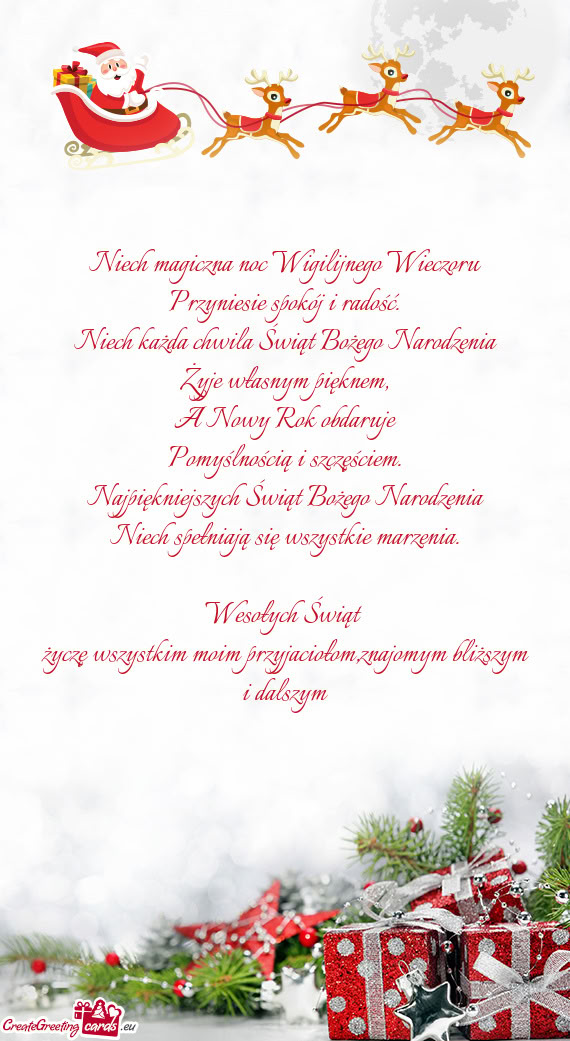 Niech magiczna noc Wigilijnego Wieczoru
Przyniesie spokój i radość.
Niech każda chwila Świąt Bożego Narodzenia
Żyje własnym pięknem,
A Nowy Rok obdaruje
Pomyślnością i szczęściem.
Najpiękniejszych Świąt Bożego Narodzenia
Niech spełniają się wszystkie marzenia.
Wesołych Świąt
życzę wszystkim moim przyjaciołom,znajomym bliższym
i dalszym
CreateGreeting cards .eu